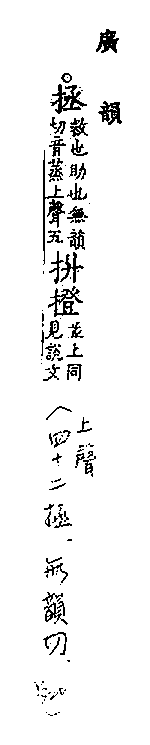 廣韻
。拯救也助也無韻
切音蒸上聲五抍撜並上同
見說文
上聲
(四十二拯.無韻切.